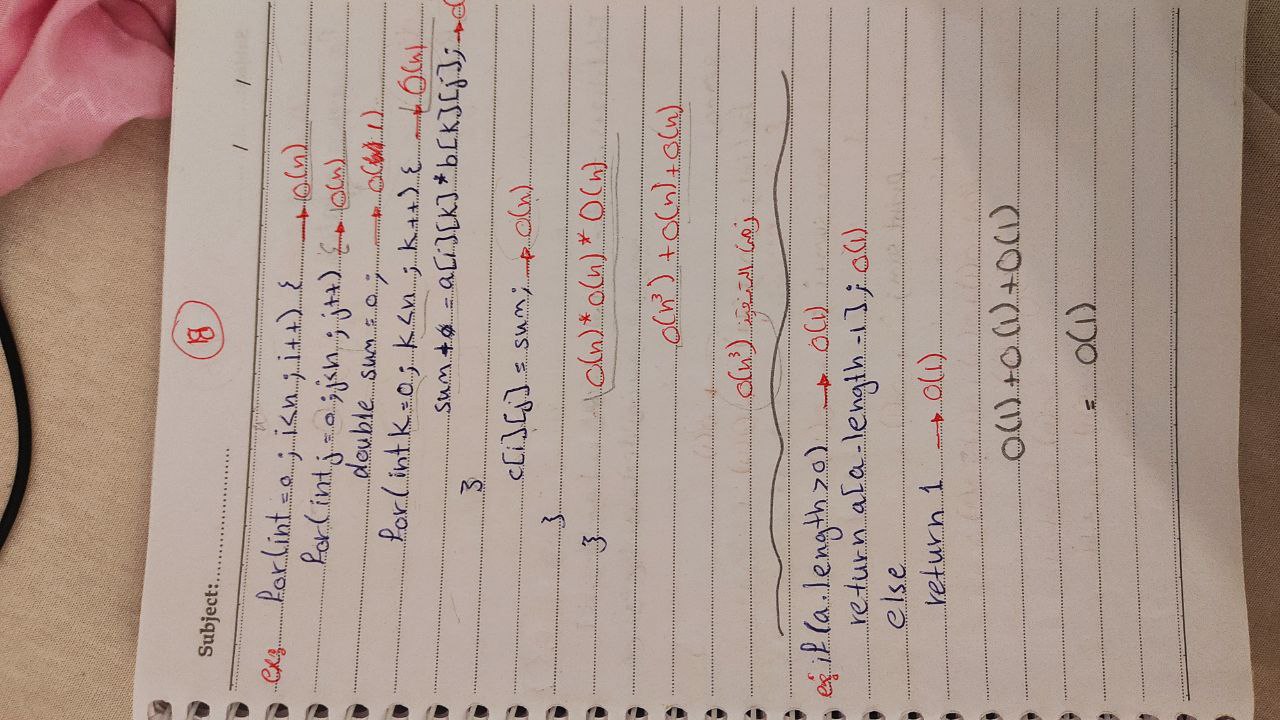 18
Subject:
/ /
ex: for(int = 0 ; i<n ; i++) { → O(n)
for(int j = 0 ; j<n ; j++) { → O(n)
double sum = 0 ; → O(1)
for(int k=0 ; k<n ; k++) { → O(n)
sum += a[i][k] * b[k][j]; → O
}
c[i][j] = sum; → O(n)
}
} O(n) * O(n) * O(n)
O(n³) + O(n) + O(n)
O(n³)
ex: if(a.length>0) → O(1)
return a[a.length-1]; O(1)
else
return 1 → O(1)
O(1)+O(1)+O(1)
= O(1)